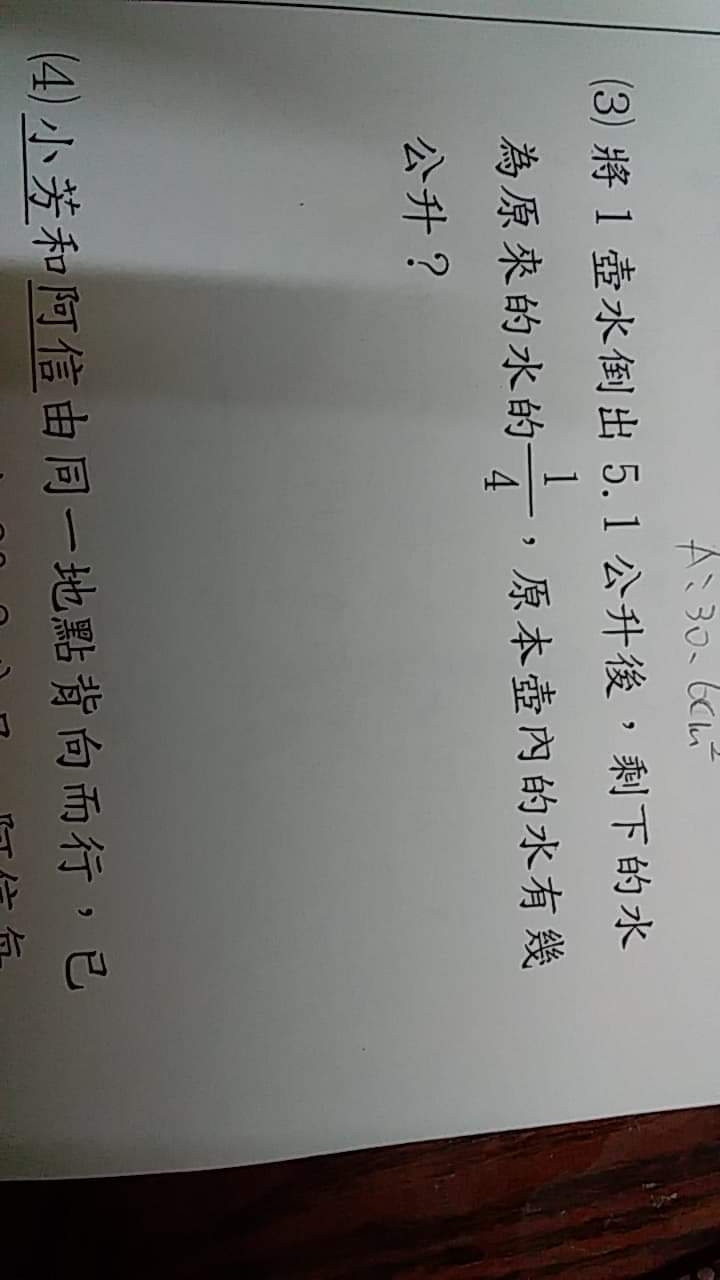 A：30、6cm²
(3) 將 1 壺水倒出 5.1 公升後，剩下的水
為原來的水的1/4，原本壺內的水有幾
公升？
(4) 小芳和阿信由同一地點背向而行，已
阿信每